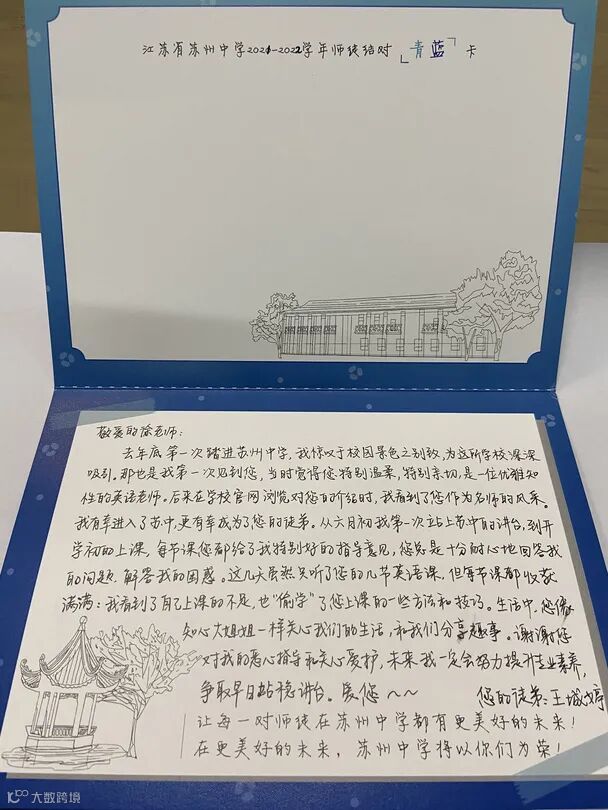 江苏省苏州中学2021-2022学年师徒结对「青蓝」卡
敬爱的徐老师:
去年底第一次踏进苏州中学,我惊叹于校园景色之别致,为这所学校深深
吸引。那也是我第一次见到您,当时觉得您特别温柔,特别亲切,是一位优雅知
性的英语老师。后来在学校官网浏览对您的介绍时,我看到了您作为名师的风采。
我有幸进入了苏中,更有幸成为了您的徒弟。从六月初我第一次站上苏中的讲台,到开
学初的上课,每节课您都给了我特别好的指导意见,您总是十分耐心地回答我
的问题,解答我的困惑。这几天虽然只听了您的几节英语课,但每节课都收获
满满:我看到了自己上课的不足,也"偷学"了您上课的一些方法和技巧。生活中,您像
知心大姐姐一样关心我们的生活,和我们分享趣事。谢谢您
对我的悉心指导和关心爱护,未来我一定会努力提升专业素养,
争取早日站稳讲台。爱您~~
您的徒弟:王
让每一对师徒在苏州中学都有更美好的未来!
在更美好的未来,苏州中学将以你们为荣!
大数跨境